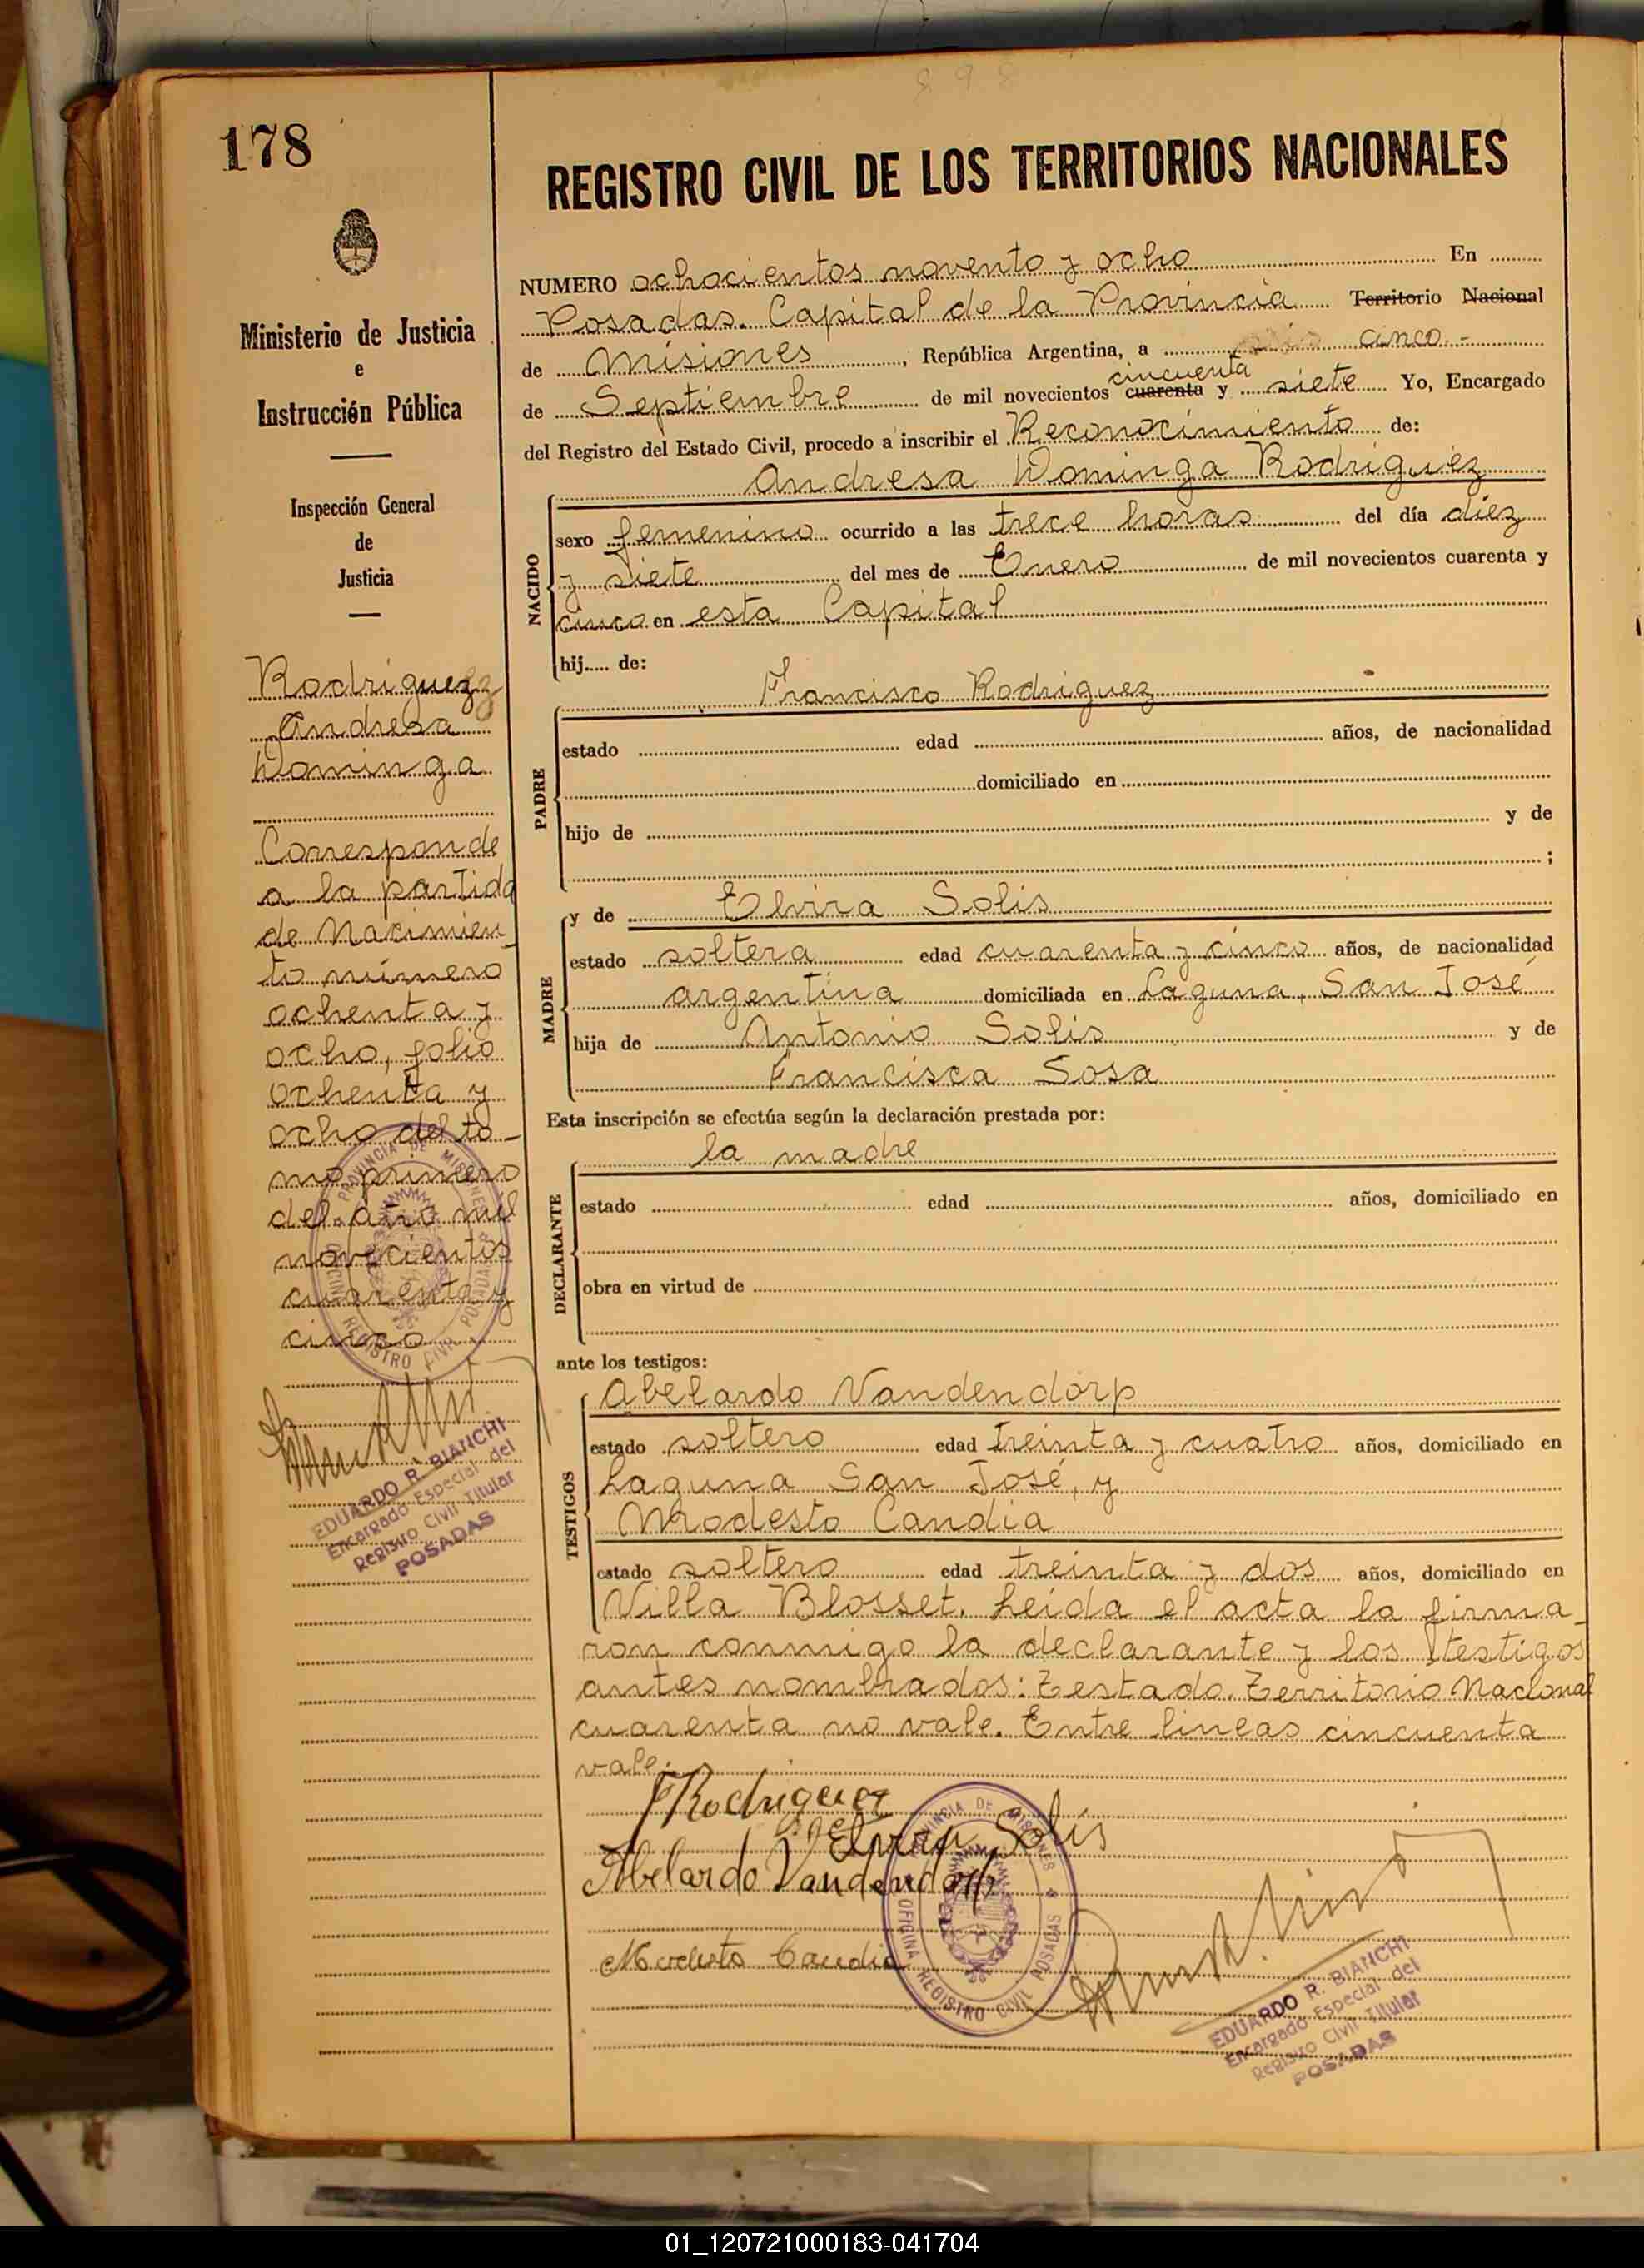 898
178
REGISTRO CIVIL DE LOS TERRITORIOS NACIONALES
Ministerio de Justicia
e
Instrucción Pública
Inspección General
de
Justicia
Rodriguez
Andresa
Dominga
Corresponde
a la partida
de Nacimien_
to número
ochenta y
ocho, folio
ochenta y
ocho del to_
mo primero
del año mil
novecientos
cuarenta y
cinco
PROVINCIA DE MISIONES
OFICINA REGISTRO CIVIL POSADAS
EDUARDO R. BIANCHI
Encargado Especial del
Registro Civil Titular
POSADAS
NUMERO ochocientos noventa y ocho En
Posadas. Capital de la Provincia Territorio Nacional
de Misiones, República Argentina, a cinco.-
cincuenta
de Septiembre de mil novecientos cuarenta y siete Yo, Encargado
del Registro del Estado Civil, procedo a inscribir el Reconocimiento de:
Andresa Dominga Rodriguez
NACIDO
sexo femenino ocurrido a las trece horas del día diez
y siete del mes de Enero de mil novecientos cuarenta y
cinco en esta Capital
hij..... de:
Francisco Rodriguez
PADRE
estado edad años, de nacionalidad
domiciliado en
hijo de y de
;
MADRE
y de Elvira Solis
estado soltera edad cuarenta y cinco años, de nacionalidad
argentina domiciliada en Laguna, San José
hija de Antonio Solis y de
Francisca Sosa
Esta inscripción se efectúa según la declaración prestada por:
la madre
DECLARANTE
estado edad años, domiciliado en
obra en virtud de
ante los testigos:
TESTIGOS
Abelardo Vandendorp
estado soltero edad treinta y cuatro años, domiciliado en
Laguna San José, y
Modesto Candia
estado soltero edad treinta y dos años, domiciliado en
Villa Blosset. Leida el acta la firma_
ron conmigo la declarante y los testigos
antes nombrados: Testado. Territorio Nacional
cuarenta no vale. Entre lineas cincuenta
vale.
FRodriguez
Elvira Solis
Abelardo Vandendorp
Modesto Candia
PROVINCIA DE MISIONES
OFICINA REGISTRO CIVIL POSADAS
EDUARDO R. BIANCHI
Encargado Especial del
Registro Civil Titular
POSADAS
01_120721000183-041704